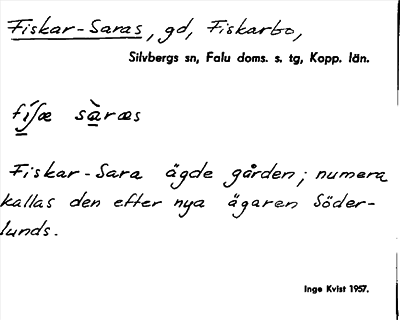 Fiskar-Saras, gd, Fiskarbo,
Silvbergs sn, Falu doms. s. tg, Kopp. län.
Fiskar-Sara ägde gården; numera
kallas den efter nya ägaren Söder-
lunds.
Inge Kvist 1957.